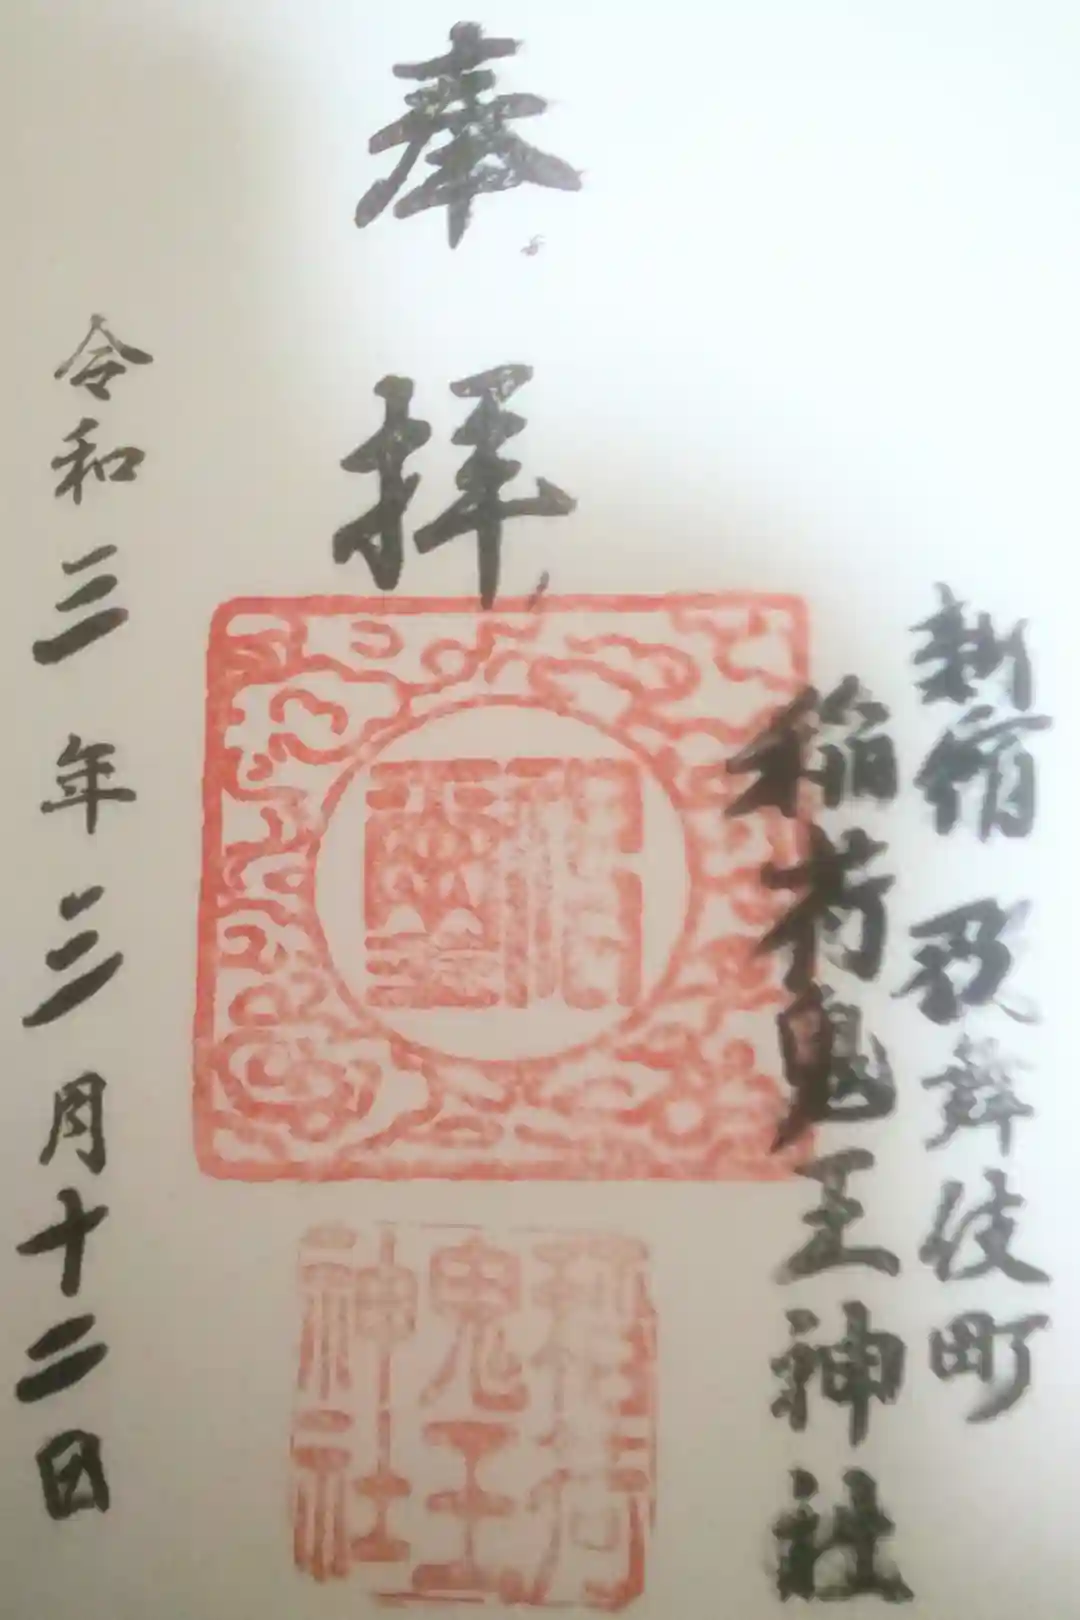 新宿歌舞伎町
稲荷鬼王神社
奉拝
稲荷
鬼王
神社
令和三年三月十二日